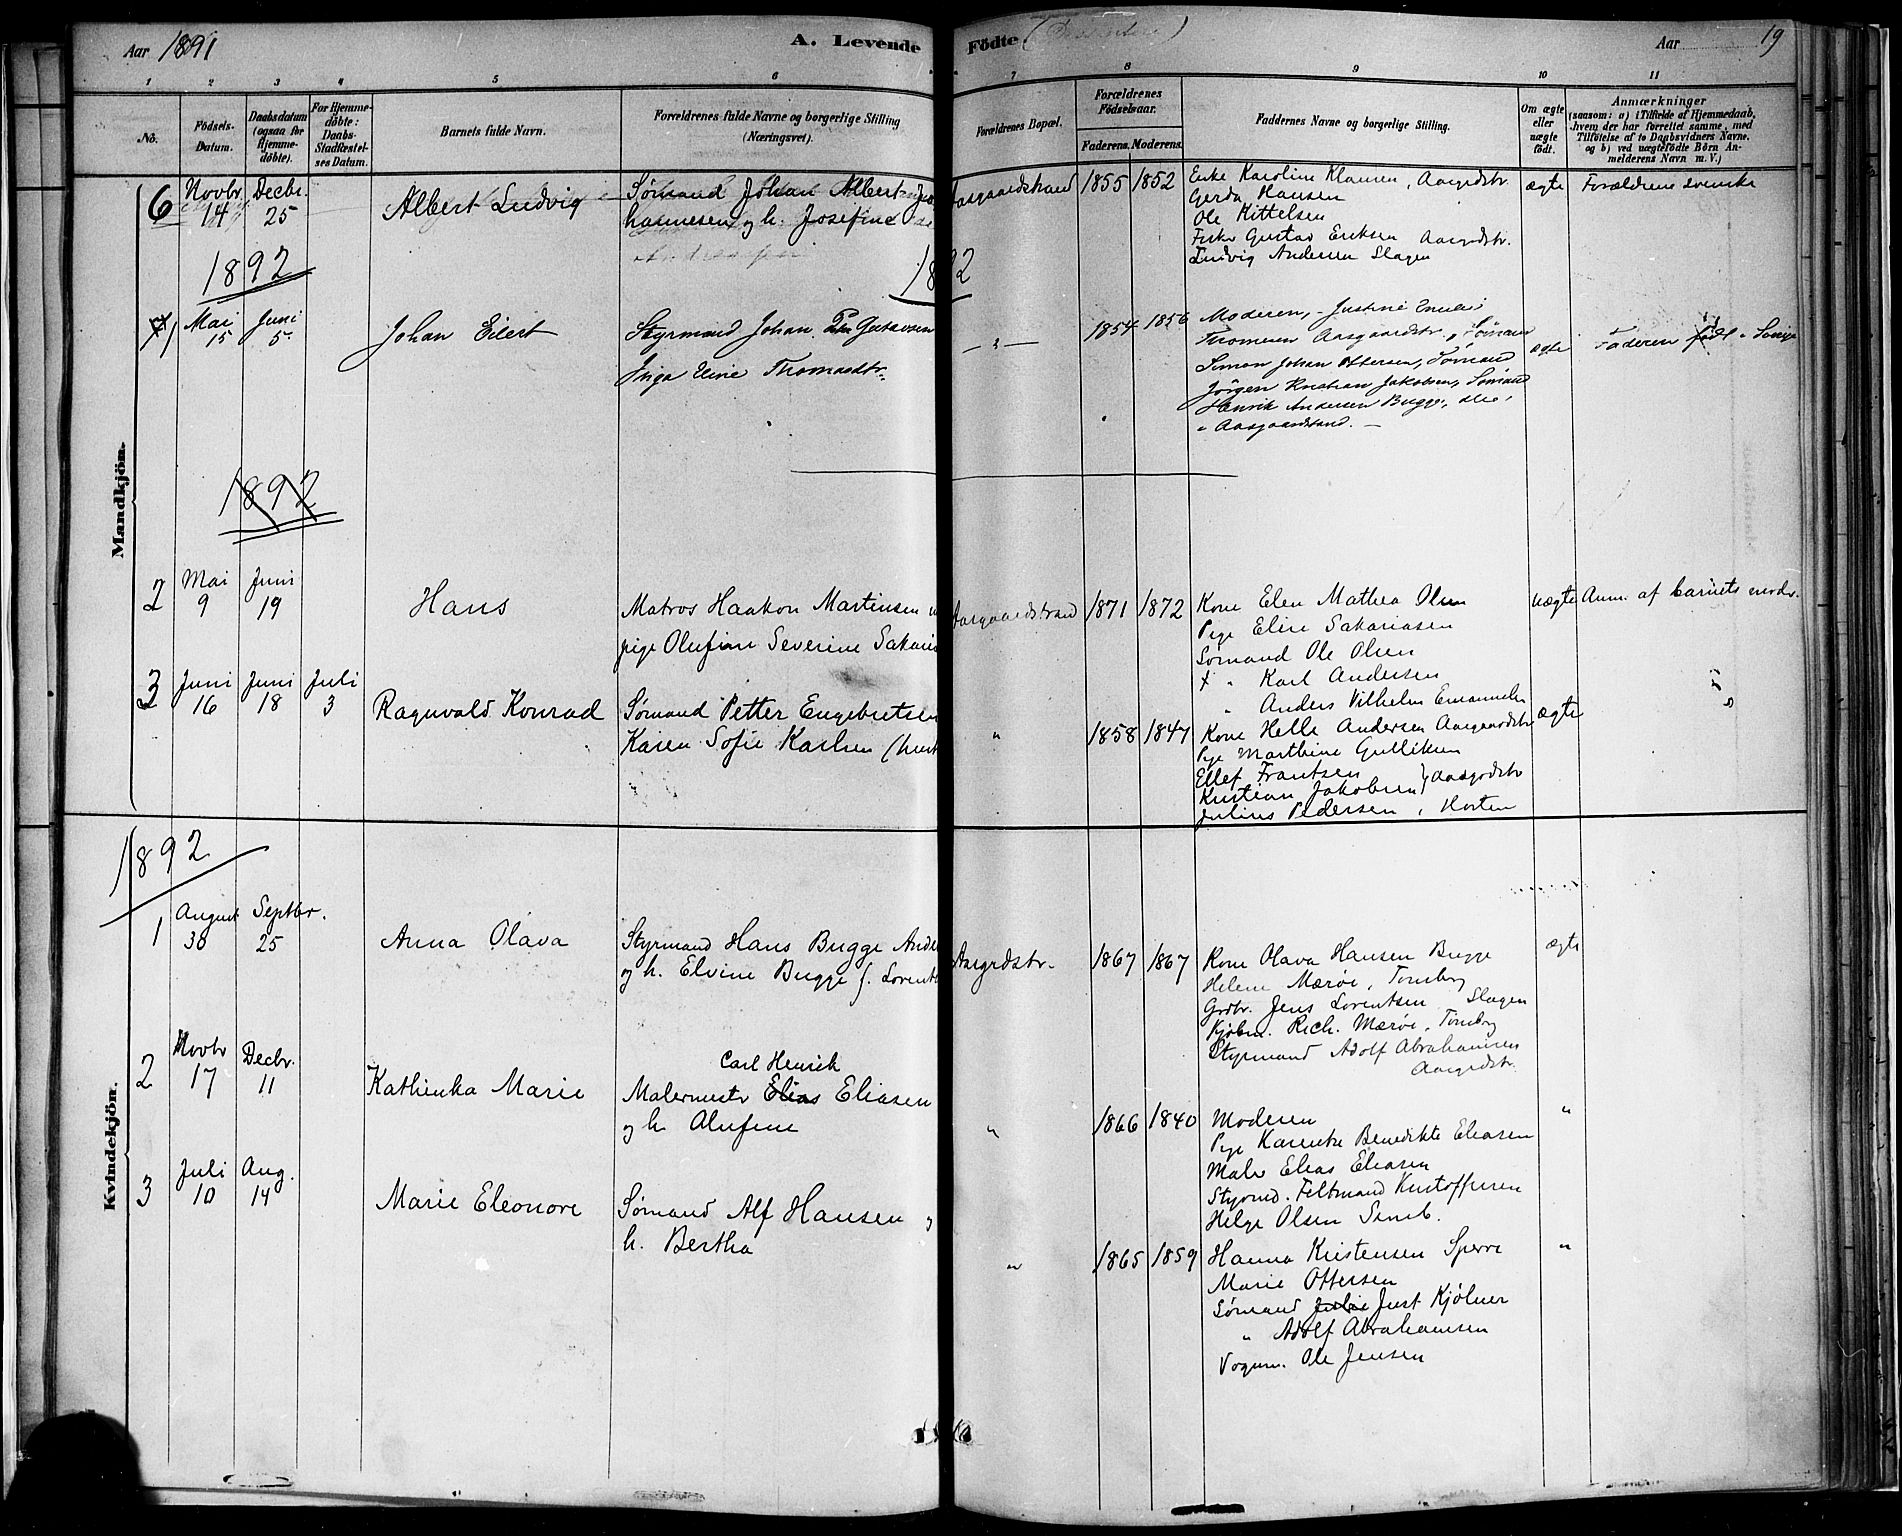 Aar 1891
A. Levende Födte
Aar 19
1 2 3 4 5 6 7 8 9 10 11
No.
Födsels-Datum.
Daabsdatum (ogsaa for Hjemmedöbte).
For Hjemmedöbte: Daabs-Stadfæstelses Datum.
Barnets fulde Navn.
Forældrenes fulde Navne og borgerlige Stilling (Næringsvei).
Forældrenes Bopæl.
Forældrenes Födselsaar.
Faderens. Moderens.
Faddernes Navne og borgerlige Stilling.
Om ægte eller uægte födt.
Anmærkninger
(saasom: a) i Tilfælde af Hjemmedaab, hvem der har forrettet samme, med Tilföielse af to Daabsvidners Navne. og b) ved uægtefödte Börn Anmelderens Navn m. V.)
Mandkjön.
6 Novbr. 14 Decbr. 25
Albert Ludvig
Sømand Johan Albert
hannesen og h. Josefine
Aasgaardstrand 1855 1852
Enke Karoline Klausen, Aasgrdstr.
Gerda Hansen
Ole Kittelsen
Fisker Gustav Eriksen Aasgrdstr.
Ludvig Andersen Slagen
ægte
Forældrene svenske
1892
1892
1 Mai 15 Juni 5
Johan Eilert
Styrmand Johan Gustavsen
Inga Elvine Thomasdtr.
— " —
1854 1856
Moderen, Justine Emilie
Thomesen Aasgaardstr., Sømand
Simon Johan Ottersen, Sømand
Jörgen Kristian Jakobsen, Sømand
Henrik Andersen Bugge, alle i
Aasgaardstrand. —
ægte
Faderen födt i Sverige
1892
2 Mai 9 Juni 19
Hans
Matros Haakon Martinsen
pige Olufine Severine Sakaris
Aasgaardstrand 1871 1872
Kone Elen Mathea Olsen
Pige Eline Sakariasen
Sømand Ole Olsen
+ " Karl Andersen
" Anders Vilhelm Emanuelsen
uægte
Anm. af barnets moder.
3 Juni 16 Juni 18 Juli 3
Ragnvald Konrad
Sømand Petter Engebretsen
Karen Sofie Karlsen
"
1858 1847
Kone Helle Andersen Aasgaardstr
Pige Marthine Gulliksen
Ellef Frantsen
Kristian Jakobsen } Aasgrdstr
Julius Pedersen, Horten
ægte
"
Kvindekjön.
1892
1 August 30 Septbr. 25
Anna Olava
Styrmand Hans Bugge Ande
og h. Elvine Bugge f. Lorents
Aasgrdstr. 1867 1867
Kone Olava Hansen Bugge
Helene Mærøe, Tønsberg
Grdbr. Jens Lorentsen Slagen
Kjøbm. Rich. Mærøe, Tønsbrg
Styrmand Adolf Abrahamsen
Aasgrdstr.
ægte
2 Novbr 17 Decbr. 11
Kathinka Marie
Carl Henrik
Malermester Elias Eliasen
og h. Olufine
"
1866 1840
Moderen
Pige Karentse Benedikte Eliasen
Maler Elias Eliasen
Styrmd. Feltmand Kristoffersen
Helge Olsen Semb.
"
3 Juli 10 Aug. 14
Marie Eleonore
Sømand Alf Hansen
h. Bertha
"
1865 1859
Hanna Kristensen Sperre
Marie Ottersen
Sømand Julie Just Kjølner
" Adolf Abrahamsen
Vognm. Ole Jensen
"